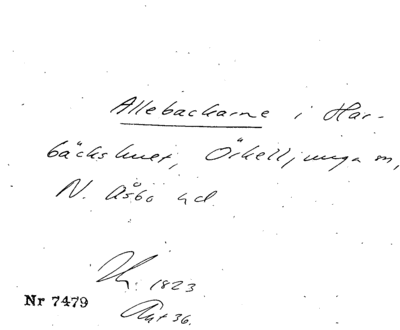 Allebackarne i Har-
bäckshult, Örkelljunga sn,
N. Åsbo hd.
1823
Nr 7479
Akt 36.